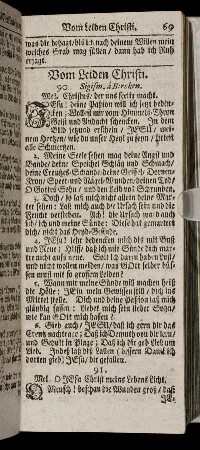 Vom Leiden Christi. 69
was dir behagt/ bis ich nach deinem Willen mein
welches Grab mag füllen/ dann hab ich Ruh
erjagt.
Vom Leiden Christi.
90. Sigism. à Bircken.
Mel. Christus/ der uns seelig macht.
JEsu! deine Passion will ich jetzt beden-
cken; Wollest mir vom Himmels-Thron
Geist und Andacht schencken. In dem
Bild jetzund erschein/ JESU/ mei-
nem Hertzen/ wie du unser Heyl zu seyn/ littest
alle Schmertzen.
2. Meine Seele sehen mag deine Angst und
Bande/ deine Speichel/ Schläg und Schmach/
deine Creutzes-Schande/ deine Geissel/ Dornen-
Cron/ Speer- und Nägel-Wunden/ deinen Tod/
O Gottes Sohn/ und den Leib voll Schrunden.
3. Doch/ so laß mich nicht allein deine Mar-
ter sehen: Laß mich auch die Ursach fein und die
Frucht verstehen. Ach! die Ursach war auch
ich/ ich und meine Sünde: Diese hat gemartert
dich/ nicht das Heyd-Gesinde.
4. JESU! lehr bedencken mich diß mit Buß
und Reue; Hilff/ daß ich mit Sünde dich mar-
tre nicht aufs neue. Solt ich darzu haben Lust/
und nicht wollen meiden/ was GOtt selber büs-
sen must mit so grossem Leiden?
5. Wann mir meine Sünde will machen heiß
die Hölle: JESU mein Gewissen still/ dich ins
Mittel stelle. Dich und deine Passion laß mich
gläubig fassen: Liebet mich sein lieber Sohn/
wie kan GOtt mich hassen?
6. Gieb auch/ JESU/ daß ich gern dir das
Creutz nachtrage: Daß ich Demuth von dir lern/
und Gedult in Plage: Daß ich dir geb Lieb um
Lieb. Indeß laß diß Lallen (bessern Danck ich
dorten gieb) JEsu/ dir gefallen.
91.
Mel. O JEsu Christ meins Lebens Licht.
O Mensch! beschau die Wunden groß/ daß
JE-